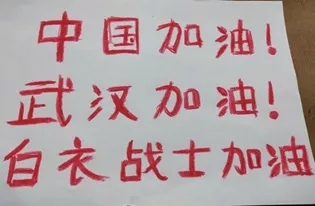 中国加油!
武汉加油!
白衣战士加油